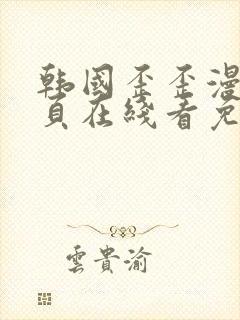 韩国歪歪漫
页在线看免
雲貴渝